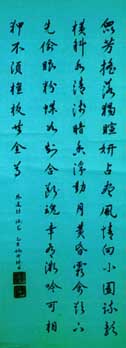 眾芳搖落獨暄妍占盡風情向小園疏影
橫斜水清淺暗香浮動月黃昏霜禽欲下
先偷眼粉蝶如知合斷魂幸有微吟可相
狎不須檀板共金尊